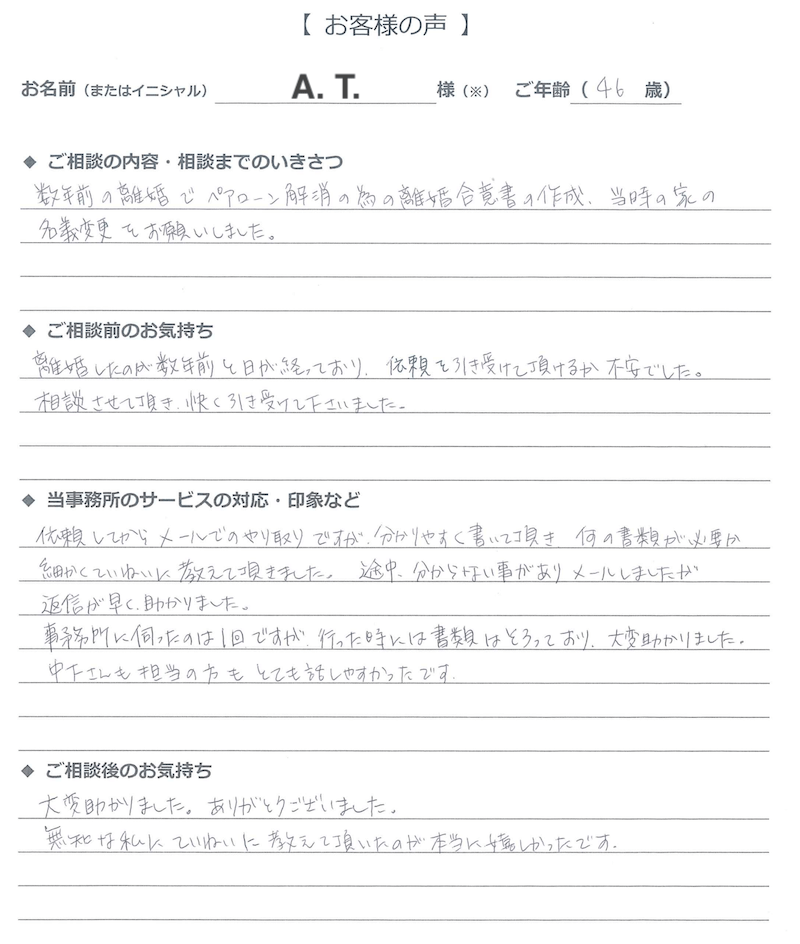 【 お客様の声 】
お名前（またはイニシャル） A. T. 様（※） ご年齢（ 46 歳）
◆ ご相談の内容・相談までのいきさつ
数年前の離婚で ペアローン解消の為の離婚合意書の作成、当時の家の
名義変更をお願いしました。
◆ ご相談前のお気持ち
離婚したのが数年前と日が経っており、依頼を引き受けて頂けるか不安でした。
相談させて頂き、快く引き受けて下さいました。
◆ 当事務所のサービスの対応・印象など
依頼してからメールでのやり取りですが、分かりやすく書いて頂き 何の書類が必要か
細かくていねいに教えて頂きました。 途中、分からない事がありメールしましたが
返信が早く、助かりました。
事務所に伺ったのは1回ですが、行った時には書類はそろっており、大変助かりました。
中下さんも担当の方も とても話しやすかったです。
◆ ご相談後のお気持ち
大変助かりました。ありがとうございました。
無知な私に ていねいに 教えて頂いたのが本当に嬉しかったです。